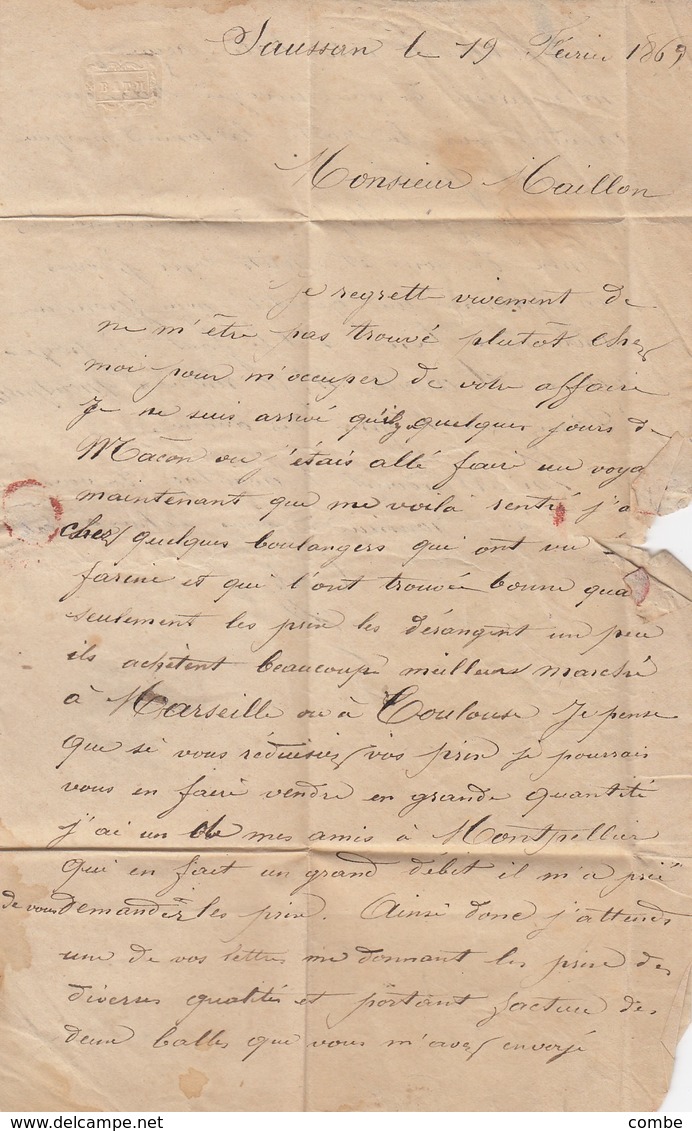 Saussan le 19 Février 1869
BATH
Monsieur Maillon
Je regrette vivement de
ne m'être pas trouvé plutôt chez
moi pour m'occuper de votre affaire
Je ne suis arrivé qu'il y quelques jours de
Mâcon ou j'étais allé faire un voya
maintenant que me voilà rentré j'a
chez quelques boulangers qui ont vu
farine et qui l'ont trouvée bonne qua
seulement les prix les dérangent un peu
ils achètent beaucoup meilleurs marché
à Marseille ou à Toulouse Je pense
que si vous réduisiez vos prix je pourrais
vous en faire vendre en grande quantité
j'ai un de mes amis à Montpellier
qui en fait un grand débit il m'a prié
de vous demander les prix. Ainsi donc j'attends
une de vos lettres me donnant les prix des
diverses qualités et portant facture des
deux balles que vous m'avez envoyé
combe